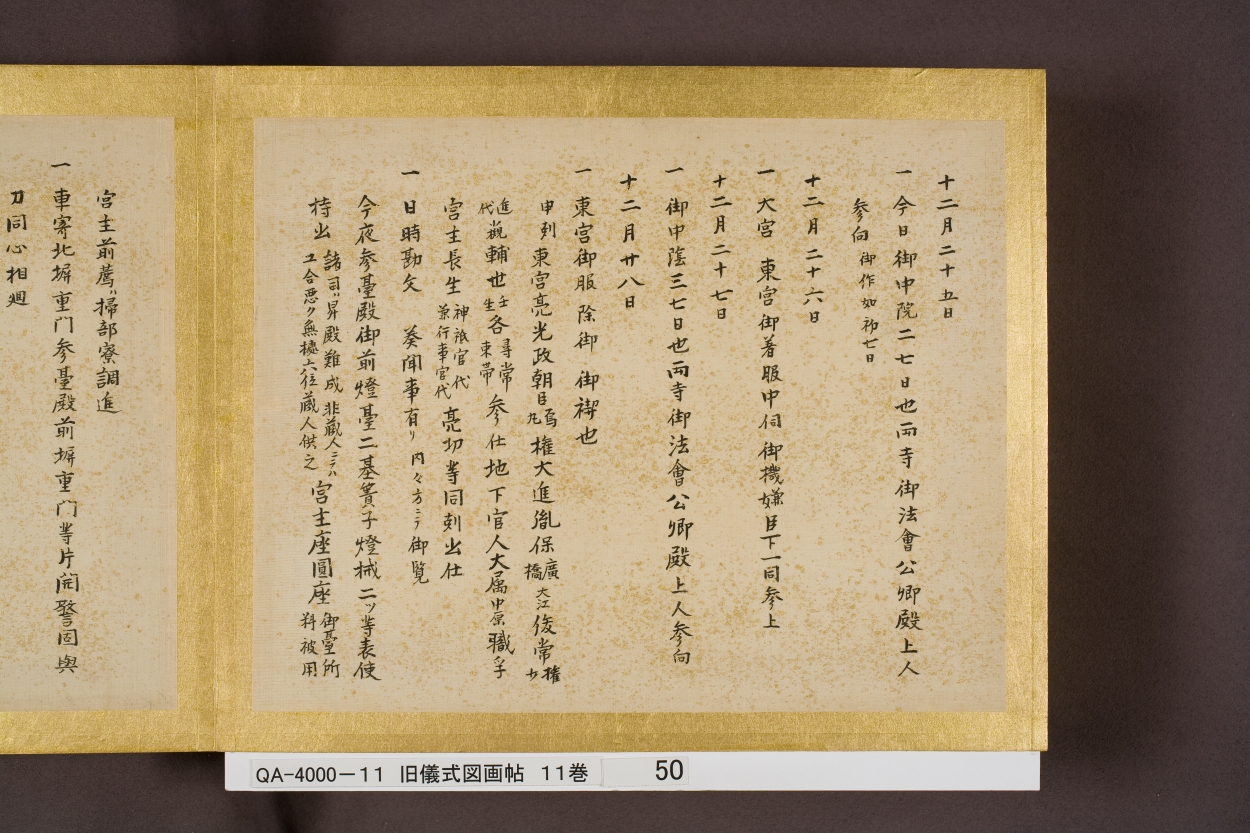 十二月二十五日
一 今日御中院二七日也両寺御法會公卿殿上人
参向 御作如初七日
十二月二十六日
一 大宮 東宮御著服中伺御機嫌臣下一同参上
十二月二十七日
一 御中陰三七日也両寺御法會公卿殿上人参向
十二月廿八日
一 東宮御服除御 御禊也
申刻東宮亮光政朝臣烏丸権大進胤保廣橋大江俊常権少
進代觀輔世壬生各尋常束帯参仕地下官人大属中原職孚
宮主長生神祇官代兼行事官代亮切等同刻出仕
一 日時勘文 奏聞事有リ内々方ニテ御覧
今夜参臺殿御前燈臺二基簀子燈械二ツ等表使
持出諸司ハ昇殿難成非蔵人ニテハエ合悪ク無據六位蔵人供之宮主座圓座御臺所料被用
宮主前薦ハ掃部寮調進
一 車寄北塀重門参臺殿前塀重門等片開警固與
力同心相廻
QA-4000-11 旧儀式図画帖 11巻 50